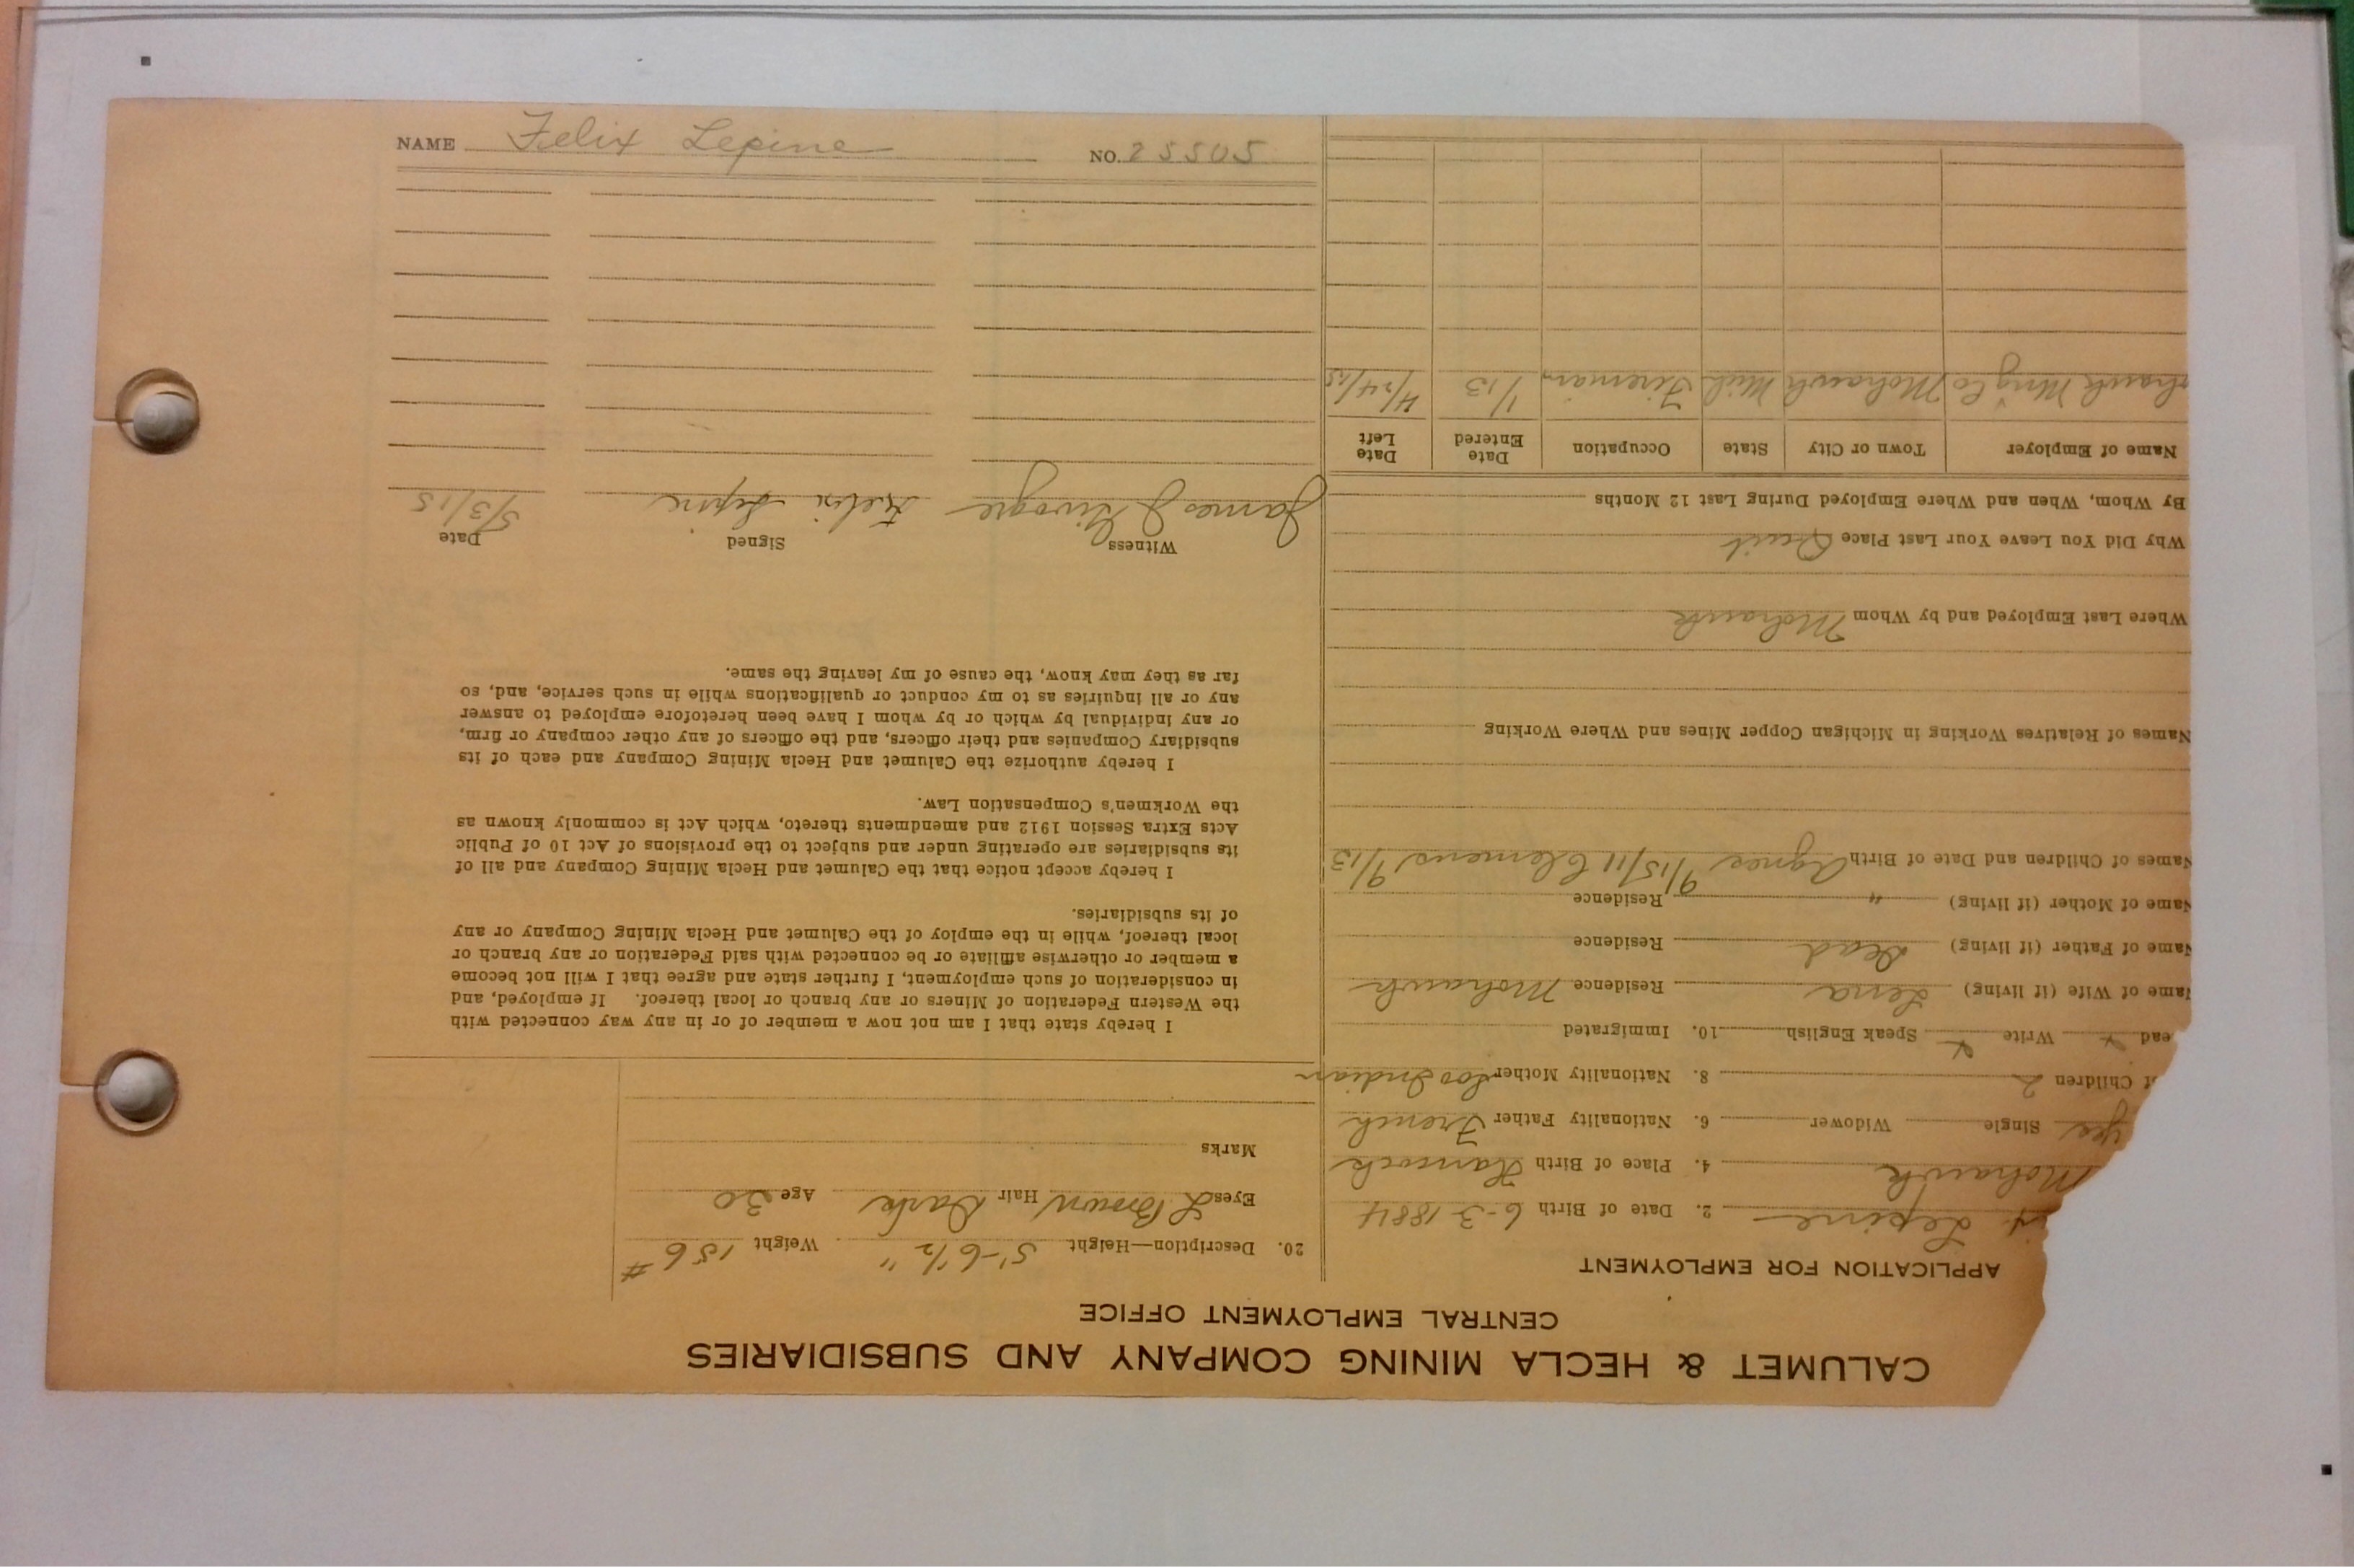 CALUMET & HECLA MINING COMPANY AND SUBSIDIARIES
CENTRAL EMPLOYMENT OFFICE
APPLICATION FOR EMPLOYMENT
Lepine 2. Date of Birth 6-3 1884
Mohawk 4. Place of Birth Hancock
yes Single Widower 6. Nationality Father French
of Children 2 8. Nationality Mother Soo Indian
ead Write Speak English 10. Immigrated
Name of Wife (if living) Lena Residence Mohawk
Name of Father (if living) Dead Residence
Name of Mother (if living) " Residence
Names of Children and Date of Birth Agnes 9/15/11 Clemens 9/13
Names of Relatives Working in Michigan Copper Mines and Where Working
Where Last Employed and by Whom Mohawk
Why Did You Leave Your Last Place Quit
By Whom, When and Where Employed During Last 12 Months
Name of Employer Town or City State Occupation Date Entered Date Left
ohawk Mng Co Mohawk Mich Fireman 1/13 4/24/15
20. Description—Height 5'-6 1/2" Weight 156 #
Eyes L Brown Hair Dark Age 30
Marks
I hereby state that I am not now a member of or in any way connected with
the Western Federation of Miners or any branch or local thereof. If employed, and
in consideration of such employment, I further state and agree that I will not become
a member or otherwise affiliate or be connected with said Federation or any branch or
local thereof, while in the employ of the Calumet and Hecla Mining Company or any
of its subsidiaries.
I hereby accept notice that the Calumet and Hecla Mining Company and all of
its subsidiaries are operating under and subject to the provisions of Act 10 of Public
Acts Extra Session 1912 and amendments thereto, which Act is commonly known as
the Workmen's Compensation Law.
I hereby authorize the Calumet and Hecla Mining Company and each of its
subsidiary Companies and their officers, and the officers of any other company or firm,
or any individual by which or by whom I have been heretofore employed to answer
any or all inquiries as to my conduct or qualifications while in such service, and, so
far as they may know, the cause of my leaving the same.
Witness Signed Date
James J Felix Lepine 5/3/15
NAME Felix Lepine NO. 25505